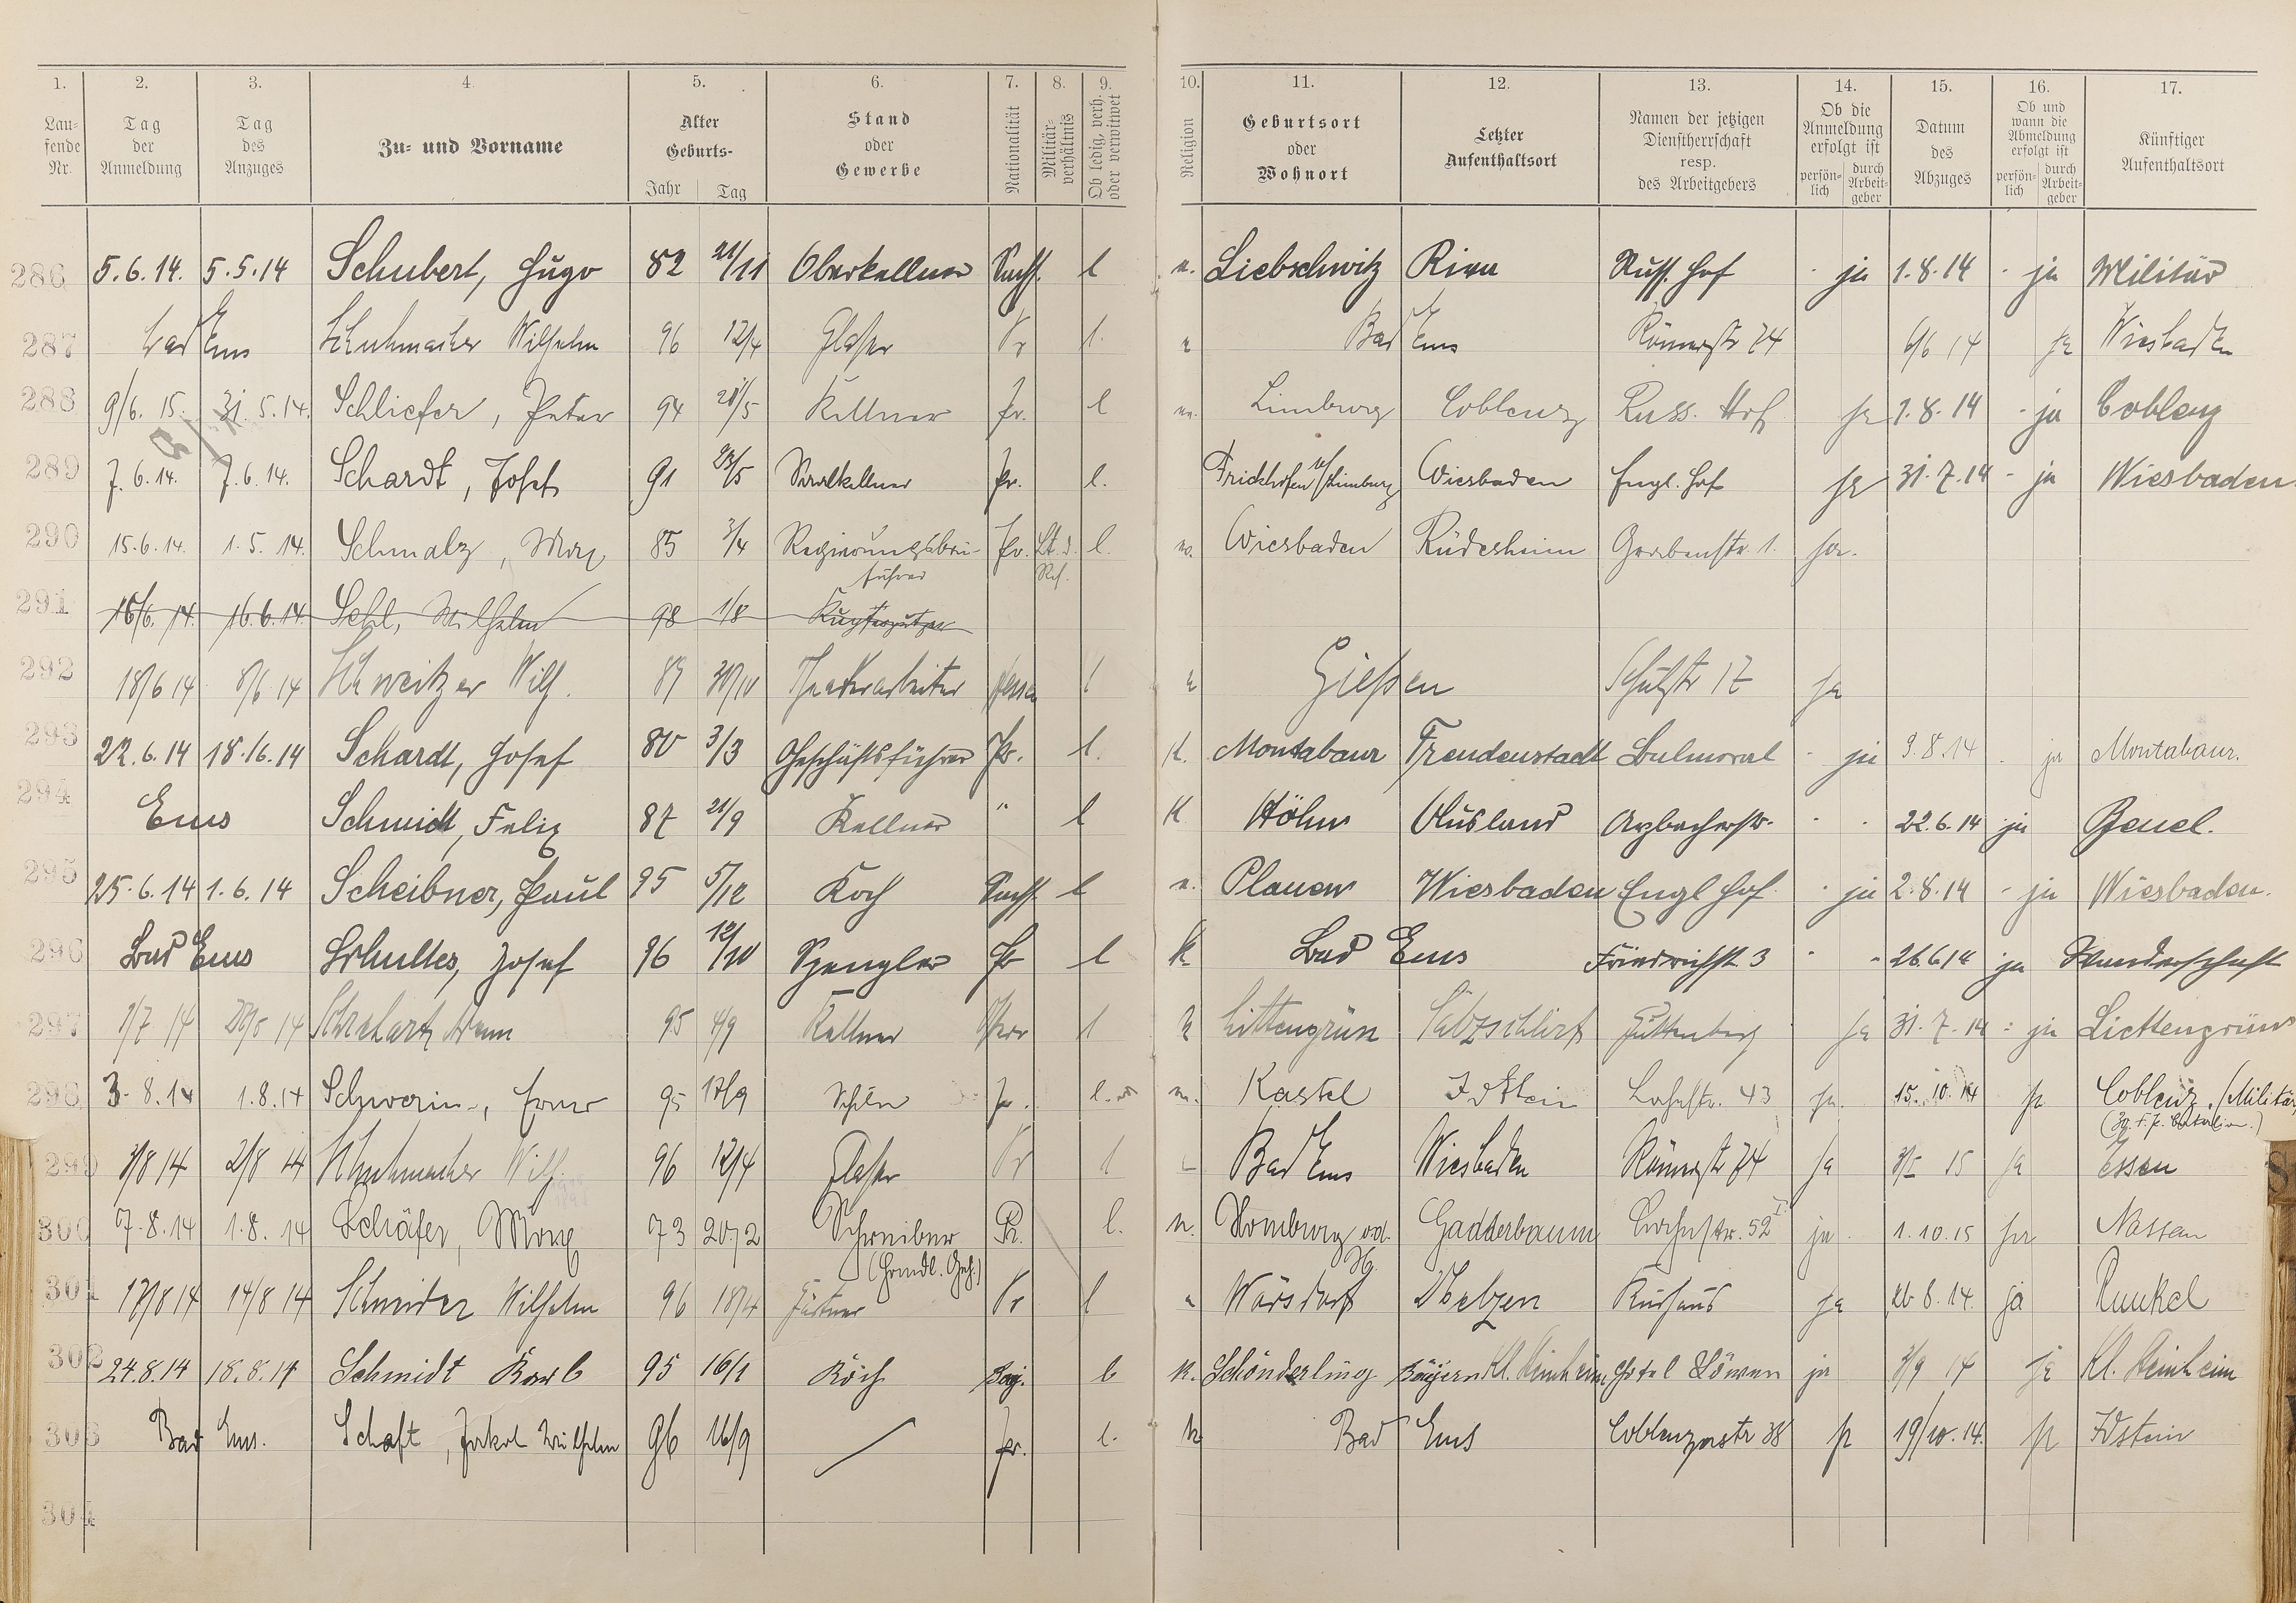 1. 2. 3. 4. 5. 6. 7. 8. 9. 10. 11. 12. 13. 14. 15. 16. 17.
Lau-fende Nr. | Tag der Anmeldung | Tag des Anzuges | Zu- und Vorname | Alter Geburts- Jahr Tag | Stand oder Gewerbe | Nationalität | Militär-verhältnis | Ob ledig, verh. oder verwitwet | Religion | Geburtsort oder Wohnort | Letzter Aufenthaltsort | Namen der jetzigen Dienstherrschaft resp. des Arbeitgebers | Ob die Anmeldung erfolgt ist persön-lich durch Arbeit-geber | Datum des Abzuges | Ob und wann die Abmeldung erfolgt ist persön-lich durch Arbeit-geber | Künftiger Aufenthaltsort
286 5.6.14. 5.5.14 Schubert, Hugo 82 21/11 Oberkellner Sachs. l e. Liebschwitz Riva Russ. Hof - ja 1.8.14 - ja Militär
287 Bad Ems Schuhmacher Wilhelm 96 12/4 Glaser Pr l. e Bad Ems Römerstr 74 6/6 14 ja Wiesbaden
288 9/6. 15. 31.5.14. Schliefer, Peter 94 28/5 Kellner Pr. l Limburg Coblenz Russ. Hof ja 1.8.14 - ja Coblenz
289 7.6.14. 7.6.14. Schardt, Josef 91 23/5 Saalkellner Pr. l. Frickhofen b/Limburg Wiesbaden Engl. Hof ja 31.7.14 - ja Wiesbaden
290 15.6.14. 1.5.14. Schmalz, Max 85 3/4 Regierungsbau- Pr. Lt. d. l. Wiesbaden Rüdesheim Grabenstr. 1. ja.
führer Res.
291 16/6. 14. 16.6.14. Sehl, Wilhelm 98 1/8 Kupferputzer
292 18/6 14 8/6 14 Schweitzer Wilh. 89 30/10 Theaterarbeiter Hessen l e Gießen Schulstr 17 ja
293 22.6.14 18.16.14 Schardt, Josef 80 3/3 Geschäftsführer Pr. l. k. Montabaur Freudenstadt Balmoral - ja 9.8.14 - ja Montabaur.
294 Ems Schmidt, Felix 87 21/9 Kellner " l K Höhn Ausland Arzbacherstr. - - 22.6.14 ja Beuel.
295 25.6.14 1.6.14 Scheibner, Paul 95 5/12 Koch Sachs. l e. Plauen Wiesbaden Engl Hof - ja 2.8.14 - ja Wiesbaden.
296 Bad Ems Schultes, Josef 96 12/10 Spengler Pr l K. Bad Ems Friedrichstr. 3 - - 26.6.14 ja Wanderschaft
297 1/7 14 28/5 14 95 4/9 Kellner l Littengrün Salzschlirf Guttenberg ja 31.7.14 - ja Liettengrün
298 3.8.14 1.8.14 Schwerin, Erner 95 17/9 Pr. l. Kastel Idstein Lahnstr. 43 ja. 15.10.14 ja Coblenz. (Militär
299 3/8 14 2/8 14 Schuhmacher Wilh. 96 12/4 Glaser Pr l Bad Ems Wiesbaden Römerstr 74 ja 15 ja Essen
300 7.8.14 1.8.14 Schäfer, Max 73 20./2 Schreiber Pr. l. Homburg v.d. Gadderbaum Lahnstr. 52 I ja 1.10.15 ja Nassau
(Handl. Geh.) H.
301 17/8 14 14/8 14 Schneider Wilhelm 96 18/4 Gärtner Pr l e Wörsdorf Kurhaus ja 26.8.14. ja Runkel
302 24.8.14 18.8.14 Schmidt Karl 95 16/1 Koch Bay. l k. Schönderling Bayern Kl. Steinheim Hotel Löwen ja 3/9 14 ja Kl. Steinheim
303 Bad Ems. Schaft, Jakob Wilhelm 96 16/9 Pr. l. k Bad Ems Coblenzerstr 38 ja 19/10.14. ja Idstein
304